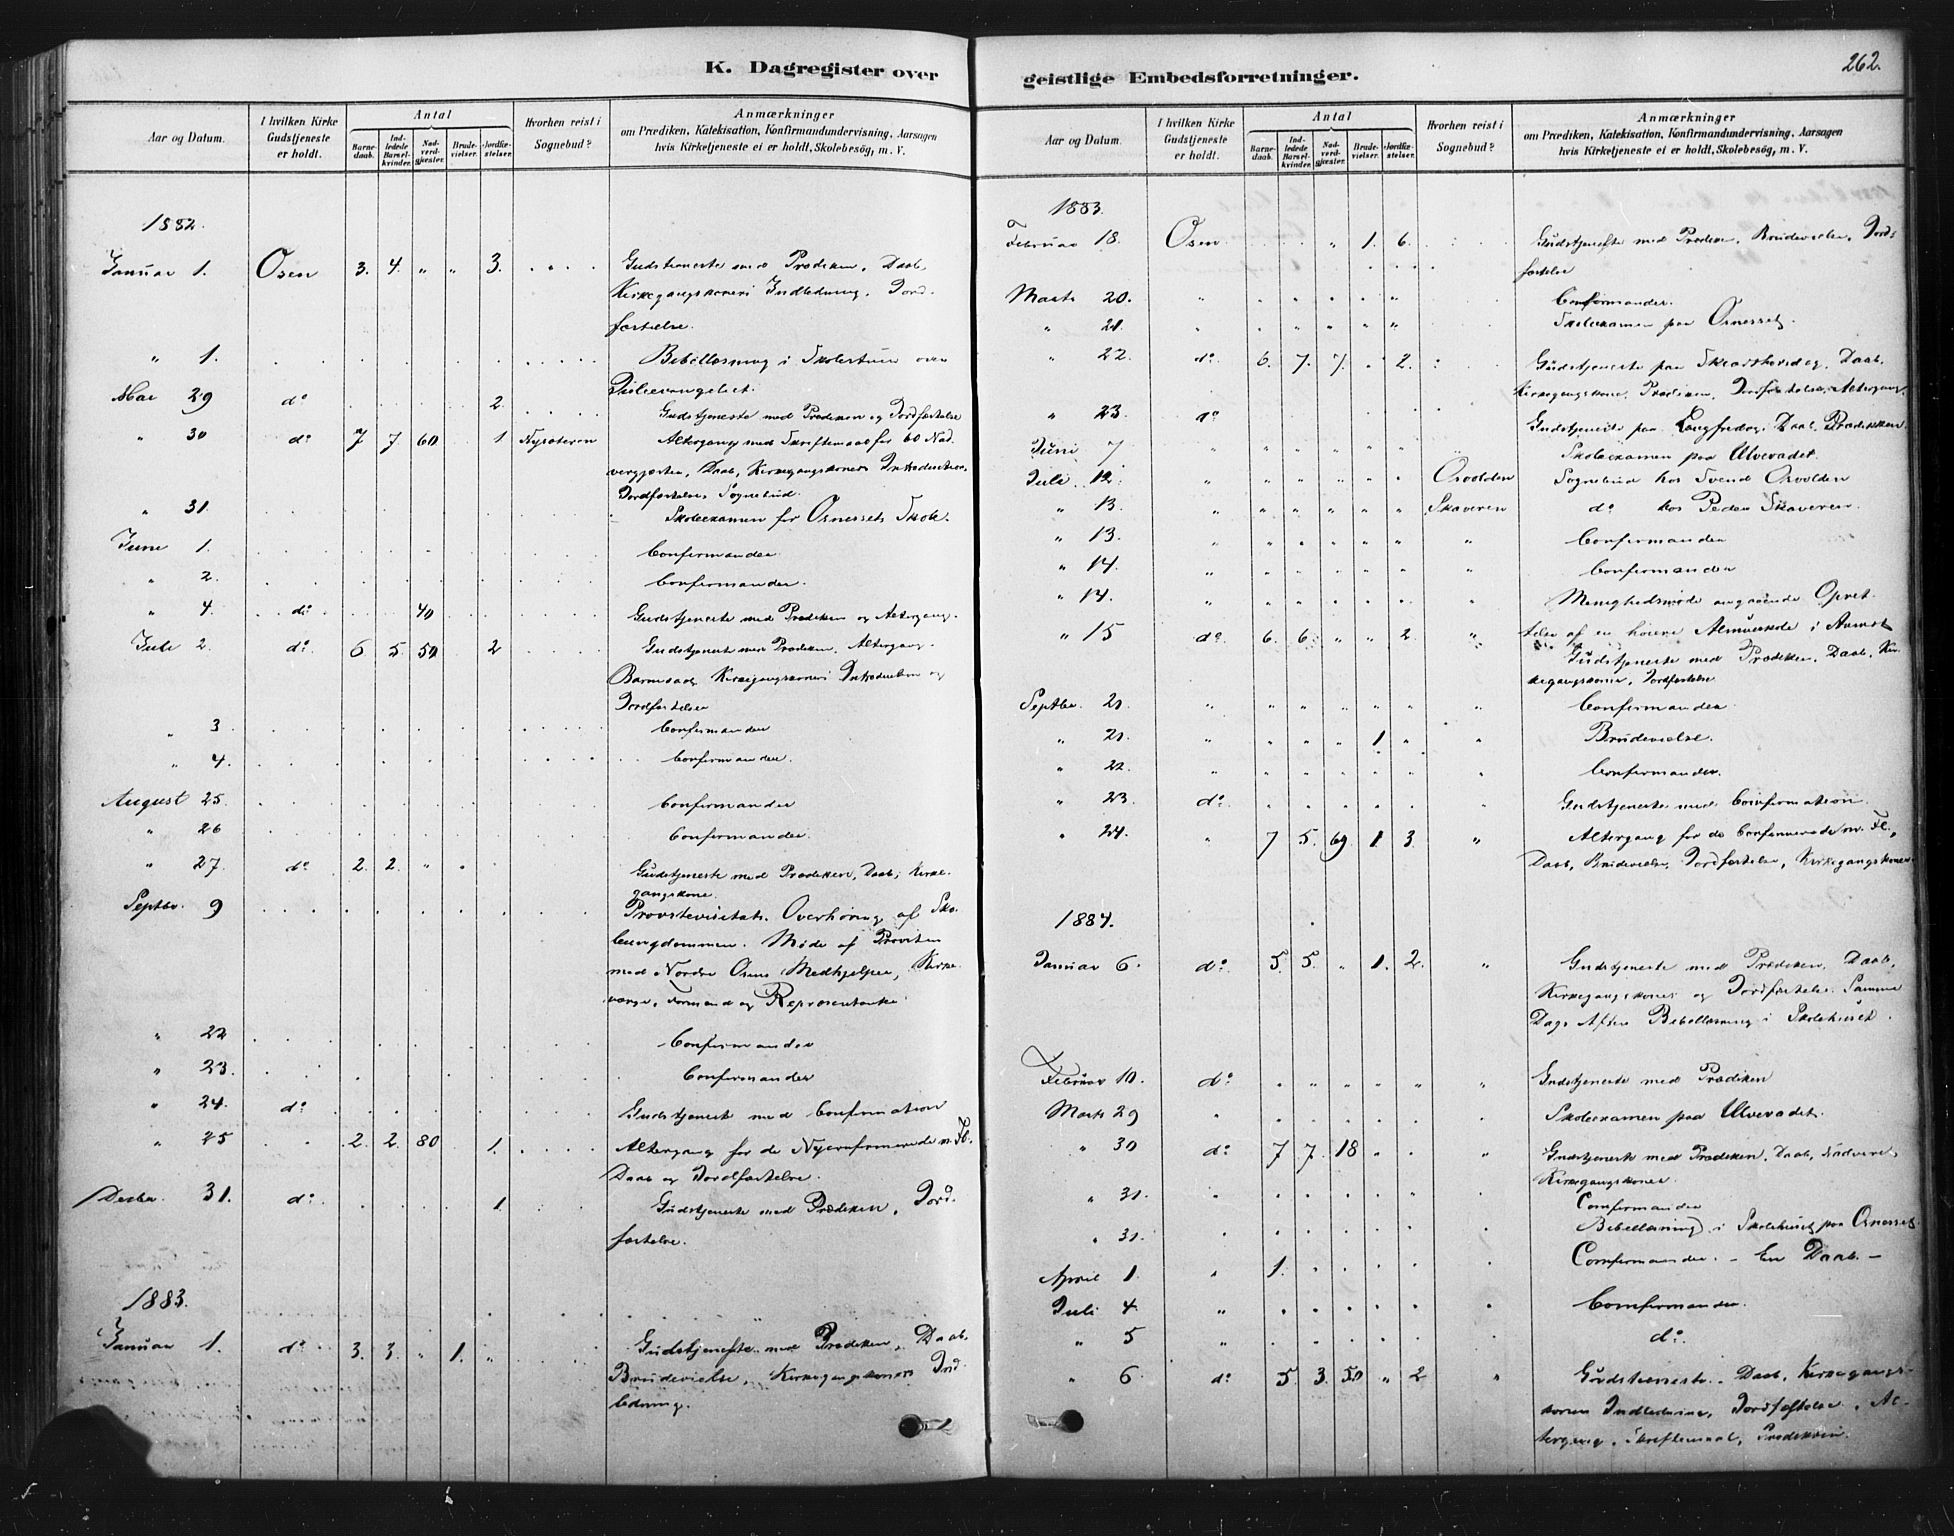 K. Dagregister over
Aar og Datum.
I hvilken Kirke Gudstjeneste er holdt.
Antal
Barne-daab.
Ind-ledede Barsel-kvinder.
Nad-verd-gjæster.
Brude-vielser.
Jordfæ-stelser.
Hvorhen reist i Sognebud?
Anmærkninger
om Prædiken, Katekisation, Konfirmandundervisning, Aarsagen
hvis Kirketjeneste ei er holdt, Skolebesög, m. V.
1882.
Januar 1. Osen 3. 4. " " 3. Gudstjeneste med Prædiken, Daab,
Kirkegangskoners Indledning, Jord-
fæstelse.
" 1. Bibellæsning i Skolestuen over
Juleevangeliet.
Mai 29 do 2. Gudstjeneste med Prædiken og Jordfæstelse
" 30 do 7 7 60 1 Altergang med Skriftemaal for 60 Nad-
vergjæster, Daab, Kirkegangskoners Introduction,
Jordfæstelse, Sognebud.
" 31. Skoleexamen for Osnessets Skole.
Juni 1. Confirmander
" 2. Confirmander.
" 4. do 40 Gudstjeneste med Prædiken og Altergang.
Juli 2. do 6 5 50 2 Gudstjeneste med Prædiken, Altergang,
Barnedaab, Kirkegangskoners Introduction og
Jordfæstelse
" 3. Confirmander
" 4. Confirmander.
August 25. Confirmander
" 26 Confirmander.
" 27. do 2. 2. " " Gudstjeneste med Prædiken, Daab, Kirke-
gangskone
Septbr. 9 Provstevisitats. Overhøring af Sko-
leungdommen. Møde af Provsten
med Nordre Osens Medhjelper, Kirke-
værge, Formænd og Repræsentanter
" 22 Confirmander
" 23. Confirmander
" 24. do Gudstjeneste med Confirmation
" 25 2. 2. 80 1. Altergang for de Nyconfirmerede m. Fl.
Daab og Jordfæstelse.
Decbr. 31. do 1. Gudstjeneste med Prædiken, Jord-
fæstelse.
1883.
Januar 1. do 3. 3. " 1. " Gudstjeneste med Prædiken, Daab,
Brudevielse, Kirkegangskoners Ind-
ledning.
geistlige Embedsforretninger.
262.
Aar og Datum.
I hvilken Kirke Gudstjeneste er holdt.
Antal
Barne-daab.
Ind-ledede Barsel-kvinder.
Nad-verd-gjæster.
Brude-vielser.
Jordfæ-stelser.
Hvorhen reist i Sognebud?
Anmærkninger
om Prædiken, Katekisation, Konfirmandundervisning, Aarsagen
hvis Kirketjeneste ei er holdt, Skolebesög, m. V.
1883.
Februar 18. Osen " 1. 6. Gudstjeneste med Prædiken, Brudevielse, Jord-
fæstelse
Marts 20. Confirmander.
" 21. Skoleexamen paa Osnesset.
" 22. do 6. 7. 7. " 2. Gudstjeneste paa Skjærthorsdag, Daab,
Kirkegangskone, Prædiken, Jordfæstelse, Altergang
" 23. do Gudstjeneste paa Langfredag, Daab, Prædiken.
Juni 7. Skoleexamen paa Ulvevadet.
Juli 12. Osvolden Sognebud hos Svend Osvolden
" 13. Skaveren do hos Peder Skaveren.
" 13. Confirmander
" 14. Confirmander
" 14. Menighedsmøde angaaende Opret-
telse af en høiere Almueskole i Aamot
" 15 do 6. 6. " " 2. Gudstjeneste med Prædiken, Daab, Kir-
kegangskoner, Jordfæstelse
Septbr. 21. Confirmander
" 21. 1 Brudevielse.
" 22. Confirmander.
" 23. do Gudstjeneste med Confirmation
" 24. 7 5. 69 1. 3. Altergang for de Confirmerede m. Fl.,
Daab, Brudevielse, Jordfæstelse, Kirkegangskoner
1884.
Januar 6. do 5. 5. " 1. 2. Gudstjeneste med Prædiken, Daab,
Kirkegangskoner og Jordfæstelse. Samme
Dags Aften Bibellæsning i Skolehuset.
Februar 10. do Gudstjeneste med Prædiken
Marts 29 Skoleexamen paa Ulvevadet.
" 30 do 7 7. 18 Gudstjeneste med Prædiken, Daab, Nadveret,
Kirkegangskoner
" 31. Confirmander
" 31. Bibellæsning i Skolehuset paa Osnesset.
April 1 1. Confirmander. – En Daab. –
Juli 4. Confirmander.
" 5 do.
" 6 do 5. 3. 50 " 2 Gudstjeneste. Daab, Kirkegangs-
koners Indledning, Jordfæstelse, Al-
tergang, Skriftemaal, Prædiken.